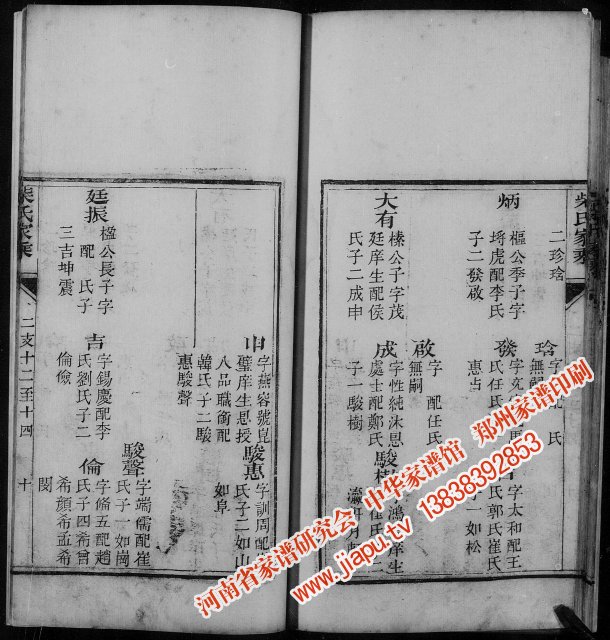 柴氏家乘
二珍琀
炳
樞公季子字
埓虎配李氏
子二發啟
琀
發
惠占
字太和配王
氏郭氏崔氏
子一如松
大有
榛公子字茂
廷庠生配侯
氏子二成申
啟
字　配任氏
無嗣
成
字性純沐恩
處士配鄭氏
子一駿樹
申
字燕容號崑
璧庠生恩授
八品職銜配
韓氏子二駿
惠駿聲
駿惠
字訓周配
氏子二如山
如阜
駿聲
字端儒配崔
氏子一如崗
廷振
楹公長子字
　配　氏子
三吉坤震
吉
字錫慶配李
氏劉氏子二
倫儉
倫
字脩五配趙
氏子四希曾
希顏希孟希
閔
柴氏家乘
二支十二至十四
十
河南省家谱研究会 中华家谱馆 郑州家谱印刷
www.jiapu.tv 13838392853